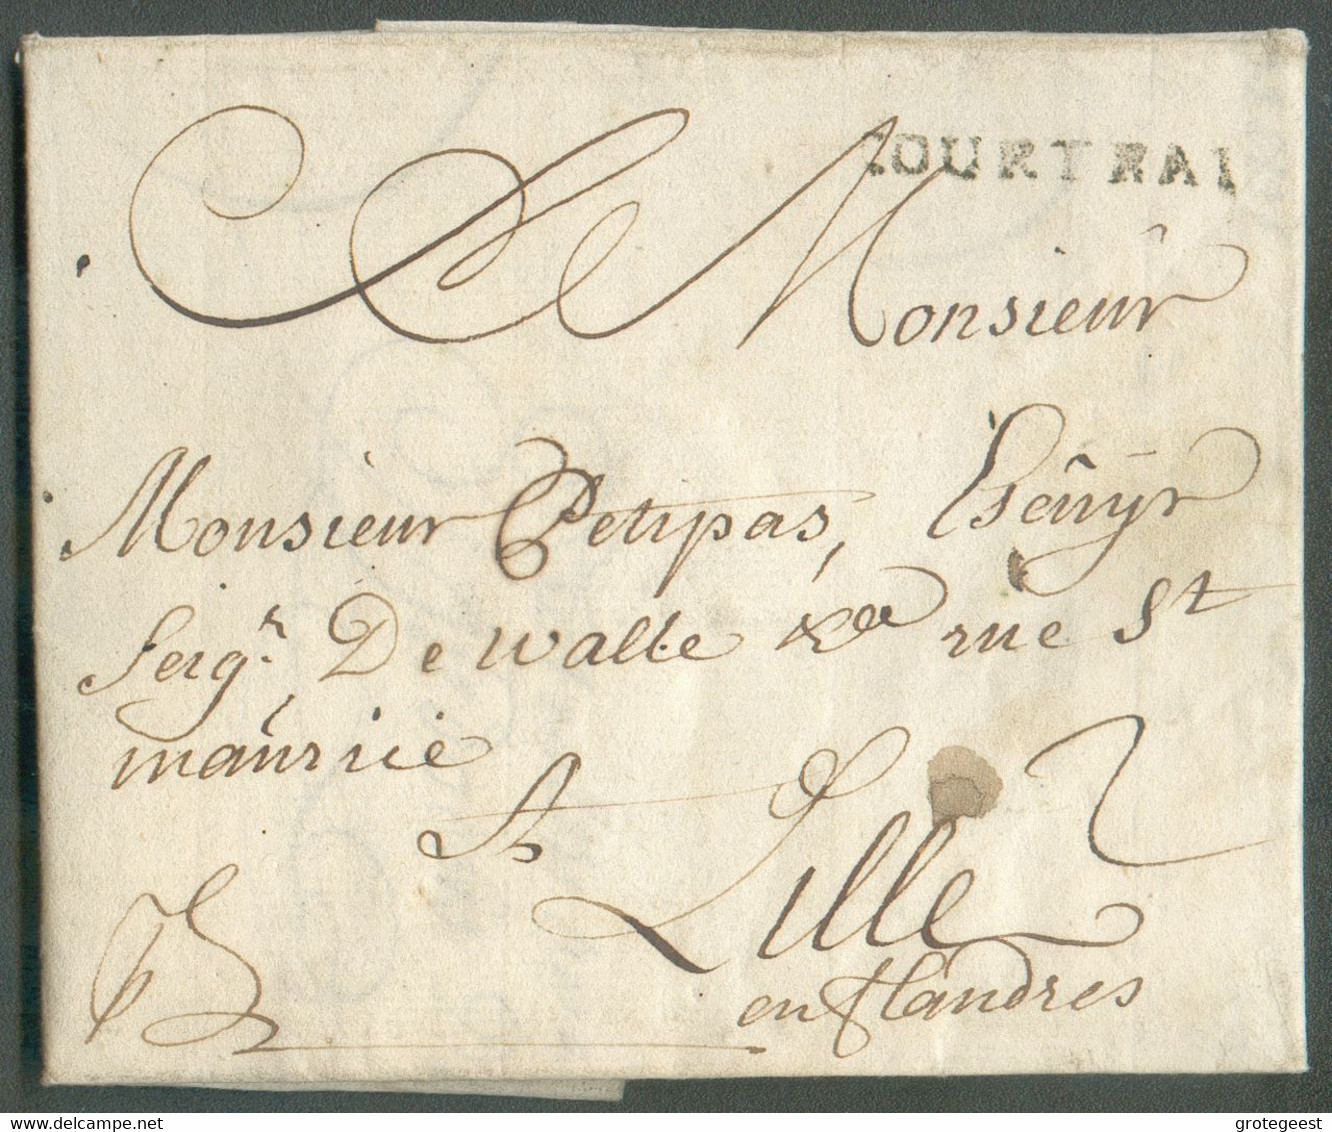 COURTRAI
Monsieur
Monsieur Petipas, Escuÿr
Seig.r De Walle &a rue St
maurice
A Lille 2
en flandres
www.delcampe.net
grotegeest